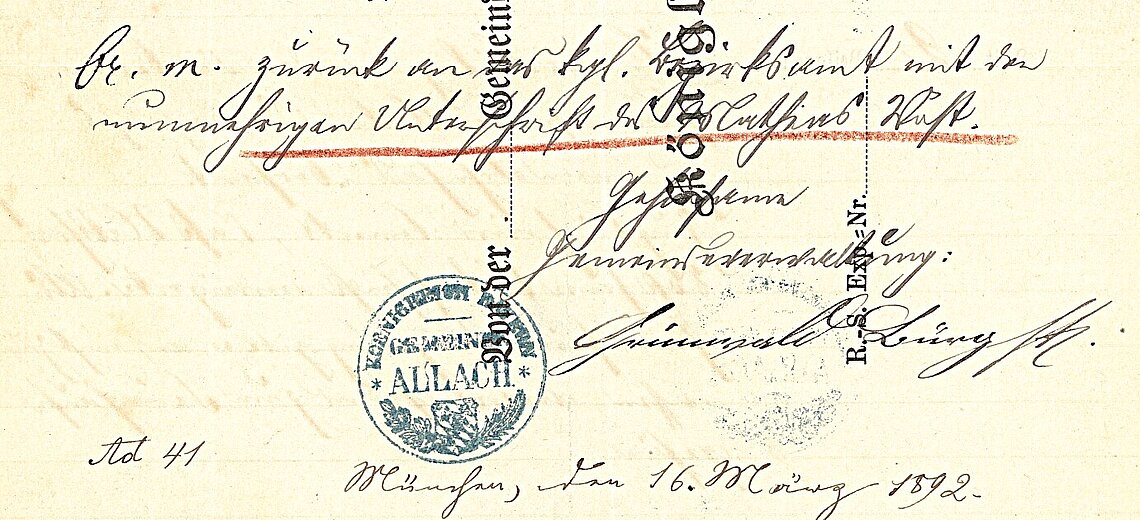 br. m. zurück an das kgl. Bezirksamt mit der
nunmehrigen Unterschrift des Mathias Wöst.
Gehorsame
Gemeindeverwaltung:
Grünwald Bürgstr.
KOENIGREICH BAYERN
GEMEINDE
* ALLACH *
Ad 41
München, den 16. März 1892.
Von der
Gemeind
Königl
R.-S. Exp.-Nr.